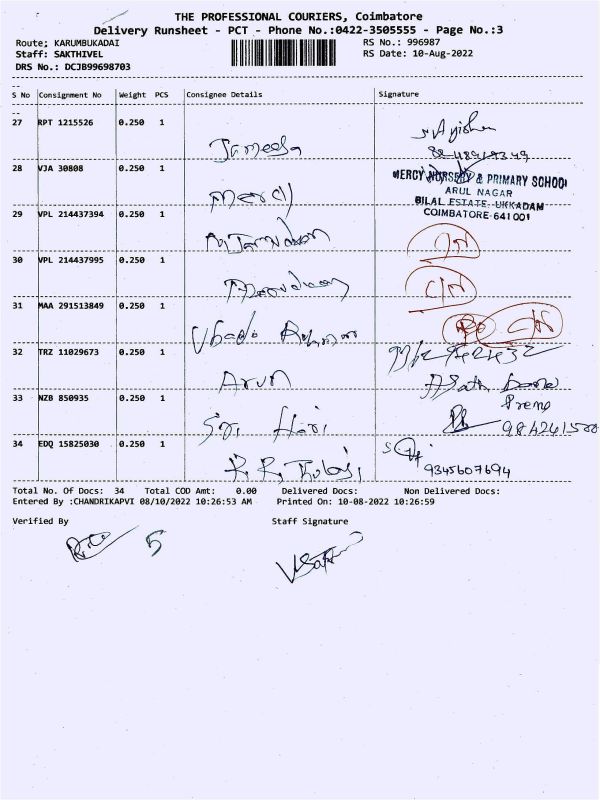 THE PROFESSIONAL COURIERS, Coimbatore
Delivery Runsheet - PCT - Phone No.:0422-3505555 - Page No.:3
Route; KARUMBUKADAI RS No.: 996987
Staff: SAKTHIVEL RS Date: 10-Aug-2022
DRS No.: DCJB99698703
S No Consignment No Weight PCS Consignee Details Signature
27 RPT 1215526 0.250 1 Jameela
28 VJA 30808 0.250 1 Mercy
MERCY NURSERY & PRIMARY SCHOOL
ARUL NAGAR
BILAL ESTATE. UKKADAM
COIMBATORE-641 001
29 VPL 214437394 0.250 1
30 VPL 214437995 0.250 1 C/N
31 MAA 291513849 0.250 1 C/N
32 TRZ 11029673 0.250 1 Arun
33 NZB 850935 0.250 1 Sri Hari Prema
34 EDQ 15825030 0.250 1 R.R. Thulasi 9345607694
Total No. Of Docs: 34 Total COD Amt: 0.00 Delivered Docs: Non Delivered Docs:
Entered By :CHANDRIKAPVI 08/10/2022 10:26:53 AM Printed On: 10-08-2022 10:26:59
Verified By Staff Signature